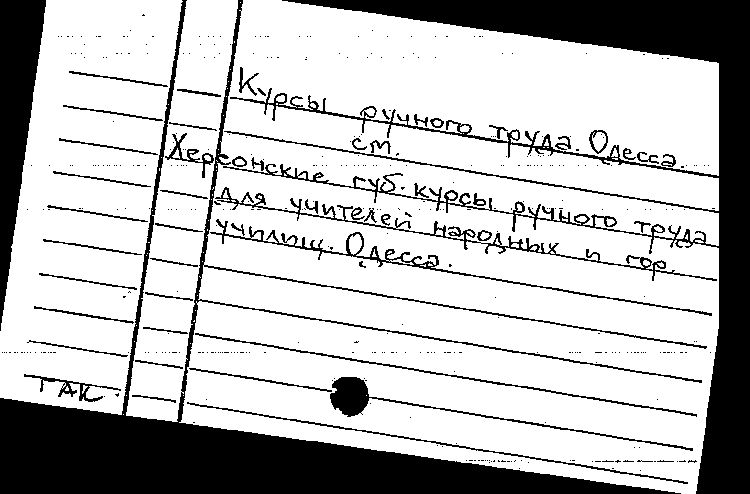 Курсы ручного труда. Одесса.
см.
Херсонские губ. курсы ручного труда
для учителей народных и гор.
училищ. Одесса.
ТАК